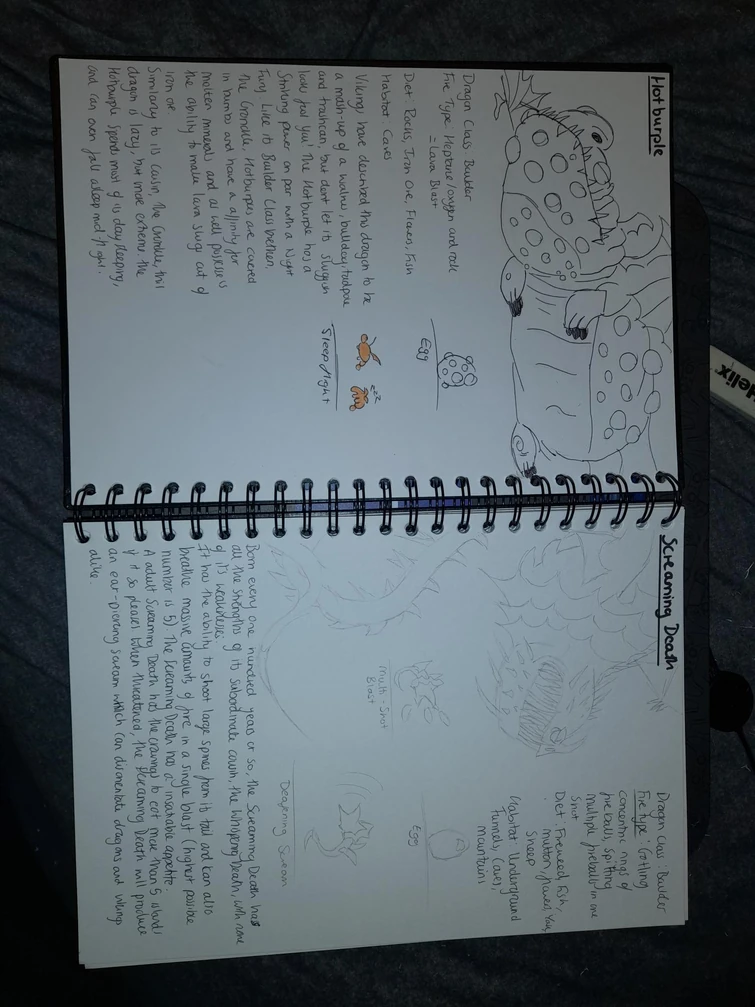 Hotburple
Dragon Class: Builder
Fire Type: Heptane/oxygen and rock
= Lava Blast
Diet: Rocks, Iron Ore, Flowers, Fish
Habitat: Caves
Vikings have described this dragon to be
a mash-up of a walrus, bulldog, tadpole
and trashcan, but dont let it's sluggish
look fool you! The Hotburple has a
Striking power on par with a Night
Fury. Like it's Builder Class brethren
the Gronckle, Hotburples are covered
in bumbs and have a affinity for
molten minerals and as well posseses
the ability to make lava slugs out of
iron ore
Similarly to is cousin, the Gronckle, this
dragon is lazy, but more extreme. The
Hotburple spends most of is day sleeping,
and can even fall asleep mid flight.
Egg
zzz
Sleep flight
Screaming Death
Dragon Class: Builder
Fire type: Gatling
concentric rings of
fire balls, spitting
multiple fireballs in one
Shot
Diet: Fireweed, Fish,
mutton, flowers, Yak,
Sheep
Habitat: Underground
Tunnels, Caves,
mountains
Multi-Shot
Blast
Egg
Deafening Scream
Born every one hundred years or so, the Screaming Death has
all the strengths of its subordinate cousin, the Whispering Death, with none
of it's weaknesses
It has the ability to shoot large spines from it's tail and can also
breathe massive amounts of fire in a single blast (highest possible
number is 5) The Screaming Death has a insatiable appetite
A adult Screaming Death has the cravings to eat more than 5 islands
if it so pleases. When threatened, the Screaming Death will produce
an ear-piercing scream which can disorientate dragons and vikings
alike.
Helix